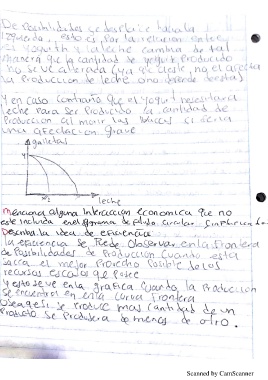 De Posibilidades se desplaza hacia la
izquierda, esto es, Por la relacion entre
el yogurth y la leche cambia de tal
manera que la cantidad de yogurt Producido
no se ve alterada (ya que este, no afecta
la Produccion de leche sino depende de esta)
y en caso contraño que el yogurt necesitara
leche Para ser Producido la cantidad de
Produccion al morir las vacas si seria
una afectacion grave.
galletas
y
x1
leche
Menciona alguna Interaccion economica que no
este incluida en el diagrama de flujo circular
Describa la idea de eficiencia
la eficiencia se Puede Observar en la frontera
de Posibilidades de Produccion cuando esta
saca el mejor Provecho Posible a los
recursos escasos que Posee
y esto se ve en la grafica cuando la Produccion
se encuentra en la curva frontera
O sea que si se Produce mas cantidad de un
Producto se Producira de menos de otro.
Scanned by CamScanner